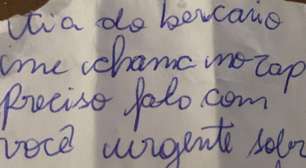 tia do bercario
me chama no zap
Preciso falo com
você urgente sob